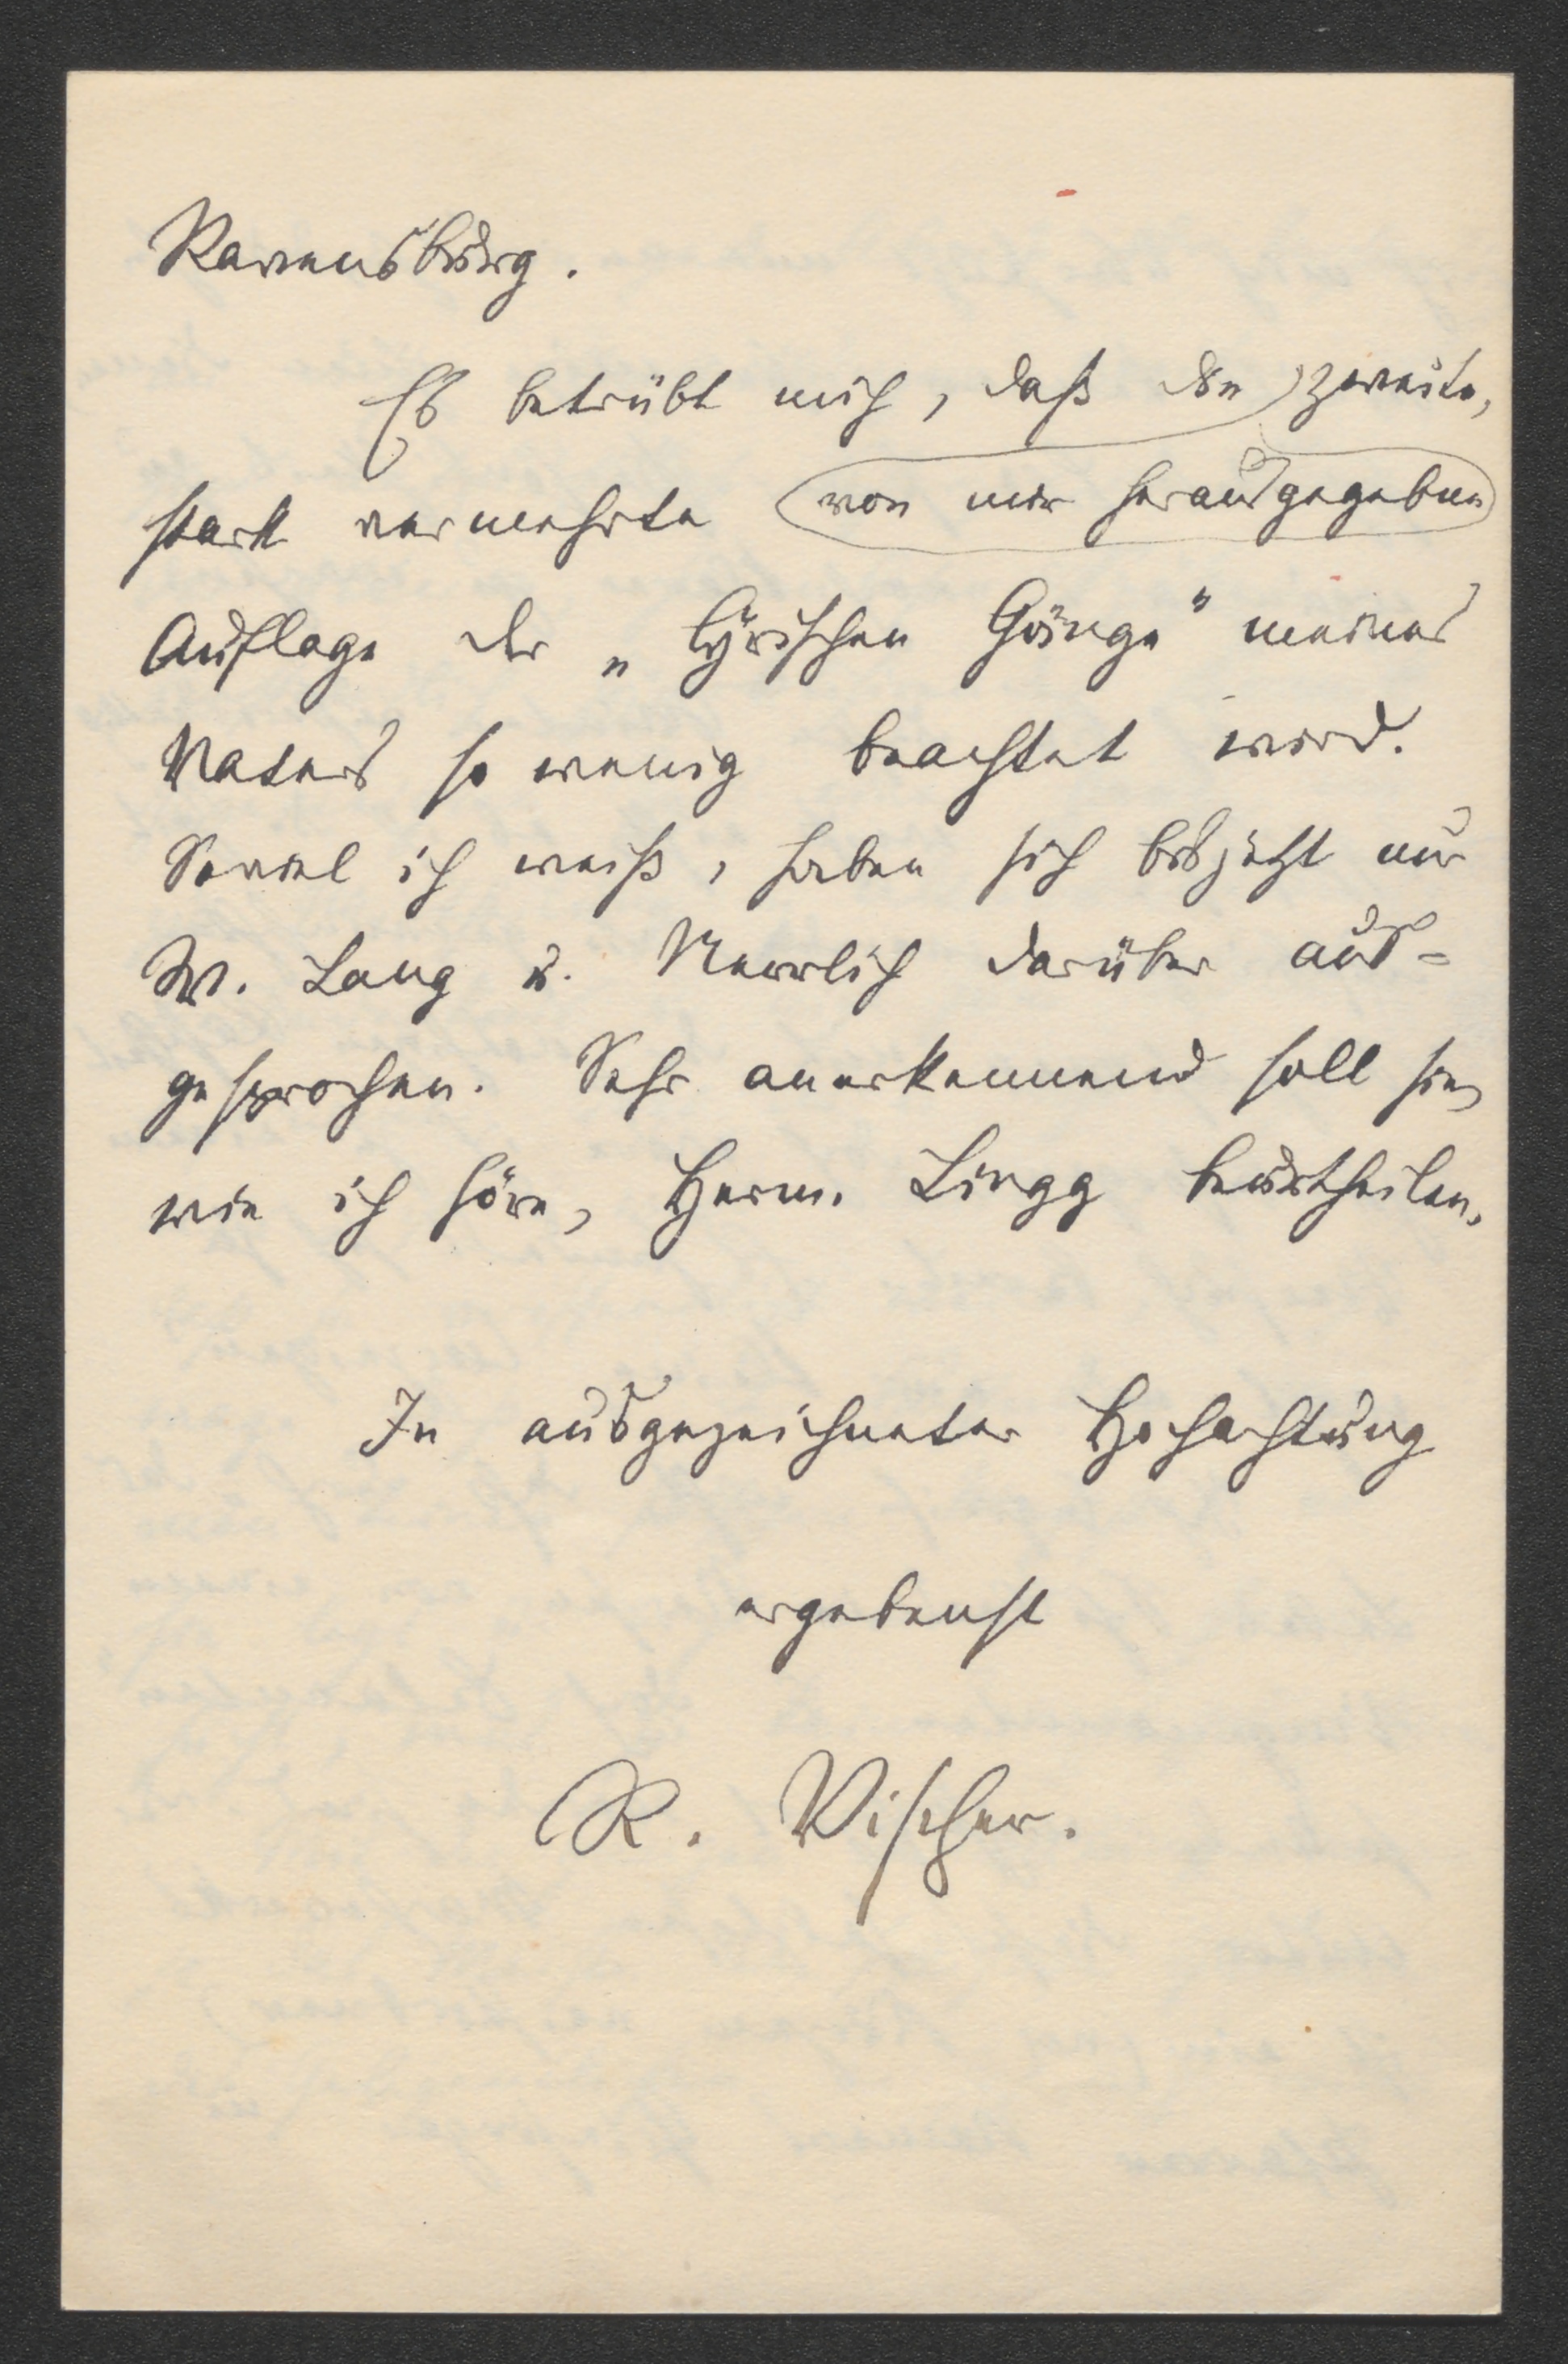 Ravensburg.
Es betrübt mich, daß die zweite,
stark vermehrte von mir herausgegebene
Auflage der „Lyrischen Gänge" meines
Vaters so wenig beachtet wird.
Soviel ich weiß, haben sich bis jetzt nur
W. Lang u. Nerrlich darüber aus-
gesprochen. Sehr anerkennend soll sie,
wie ich höre, Herm. Lingg beurtheilen.
In ausgezeichneter Hochachtung
ergebenst
R. Vischer.